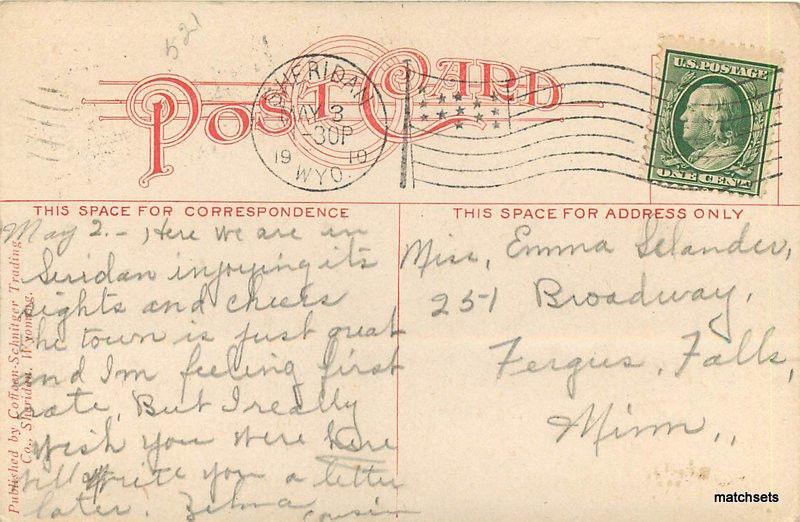 521
POST CARD
SHERIDAN
MY 3
-30P
1910
WYO.
U.S. POSTAGE
ONE CENT
THIS SPACE FOR CORRESPONDENCE
THIS SPACE FOR ADDRESS ONLY
May 2.-, Here we are in
Seridan injoying its
sights and cheers
the town is just great
and Im feeling first
rate, But I really
wish you were here
will write you a letter
later. Zelma
cousin
Miss, Emma Selander,
251 Broadway,
Fergus, Falls,
Minn,,
Published by Coffeen-Schnitger Trading
Co., Sheridan, Wyoming.
matchsets